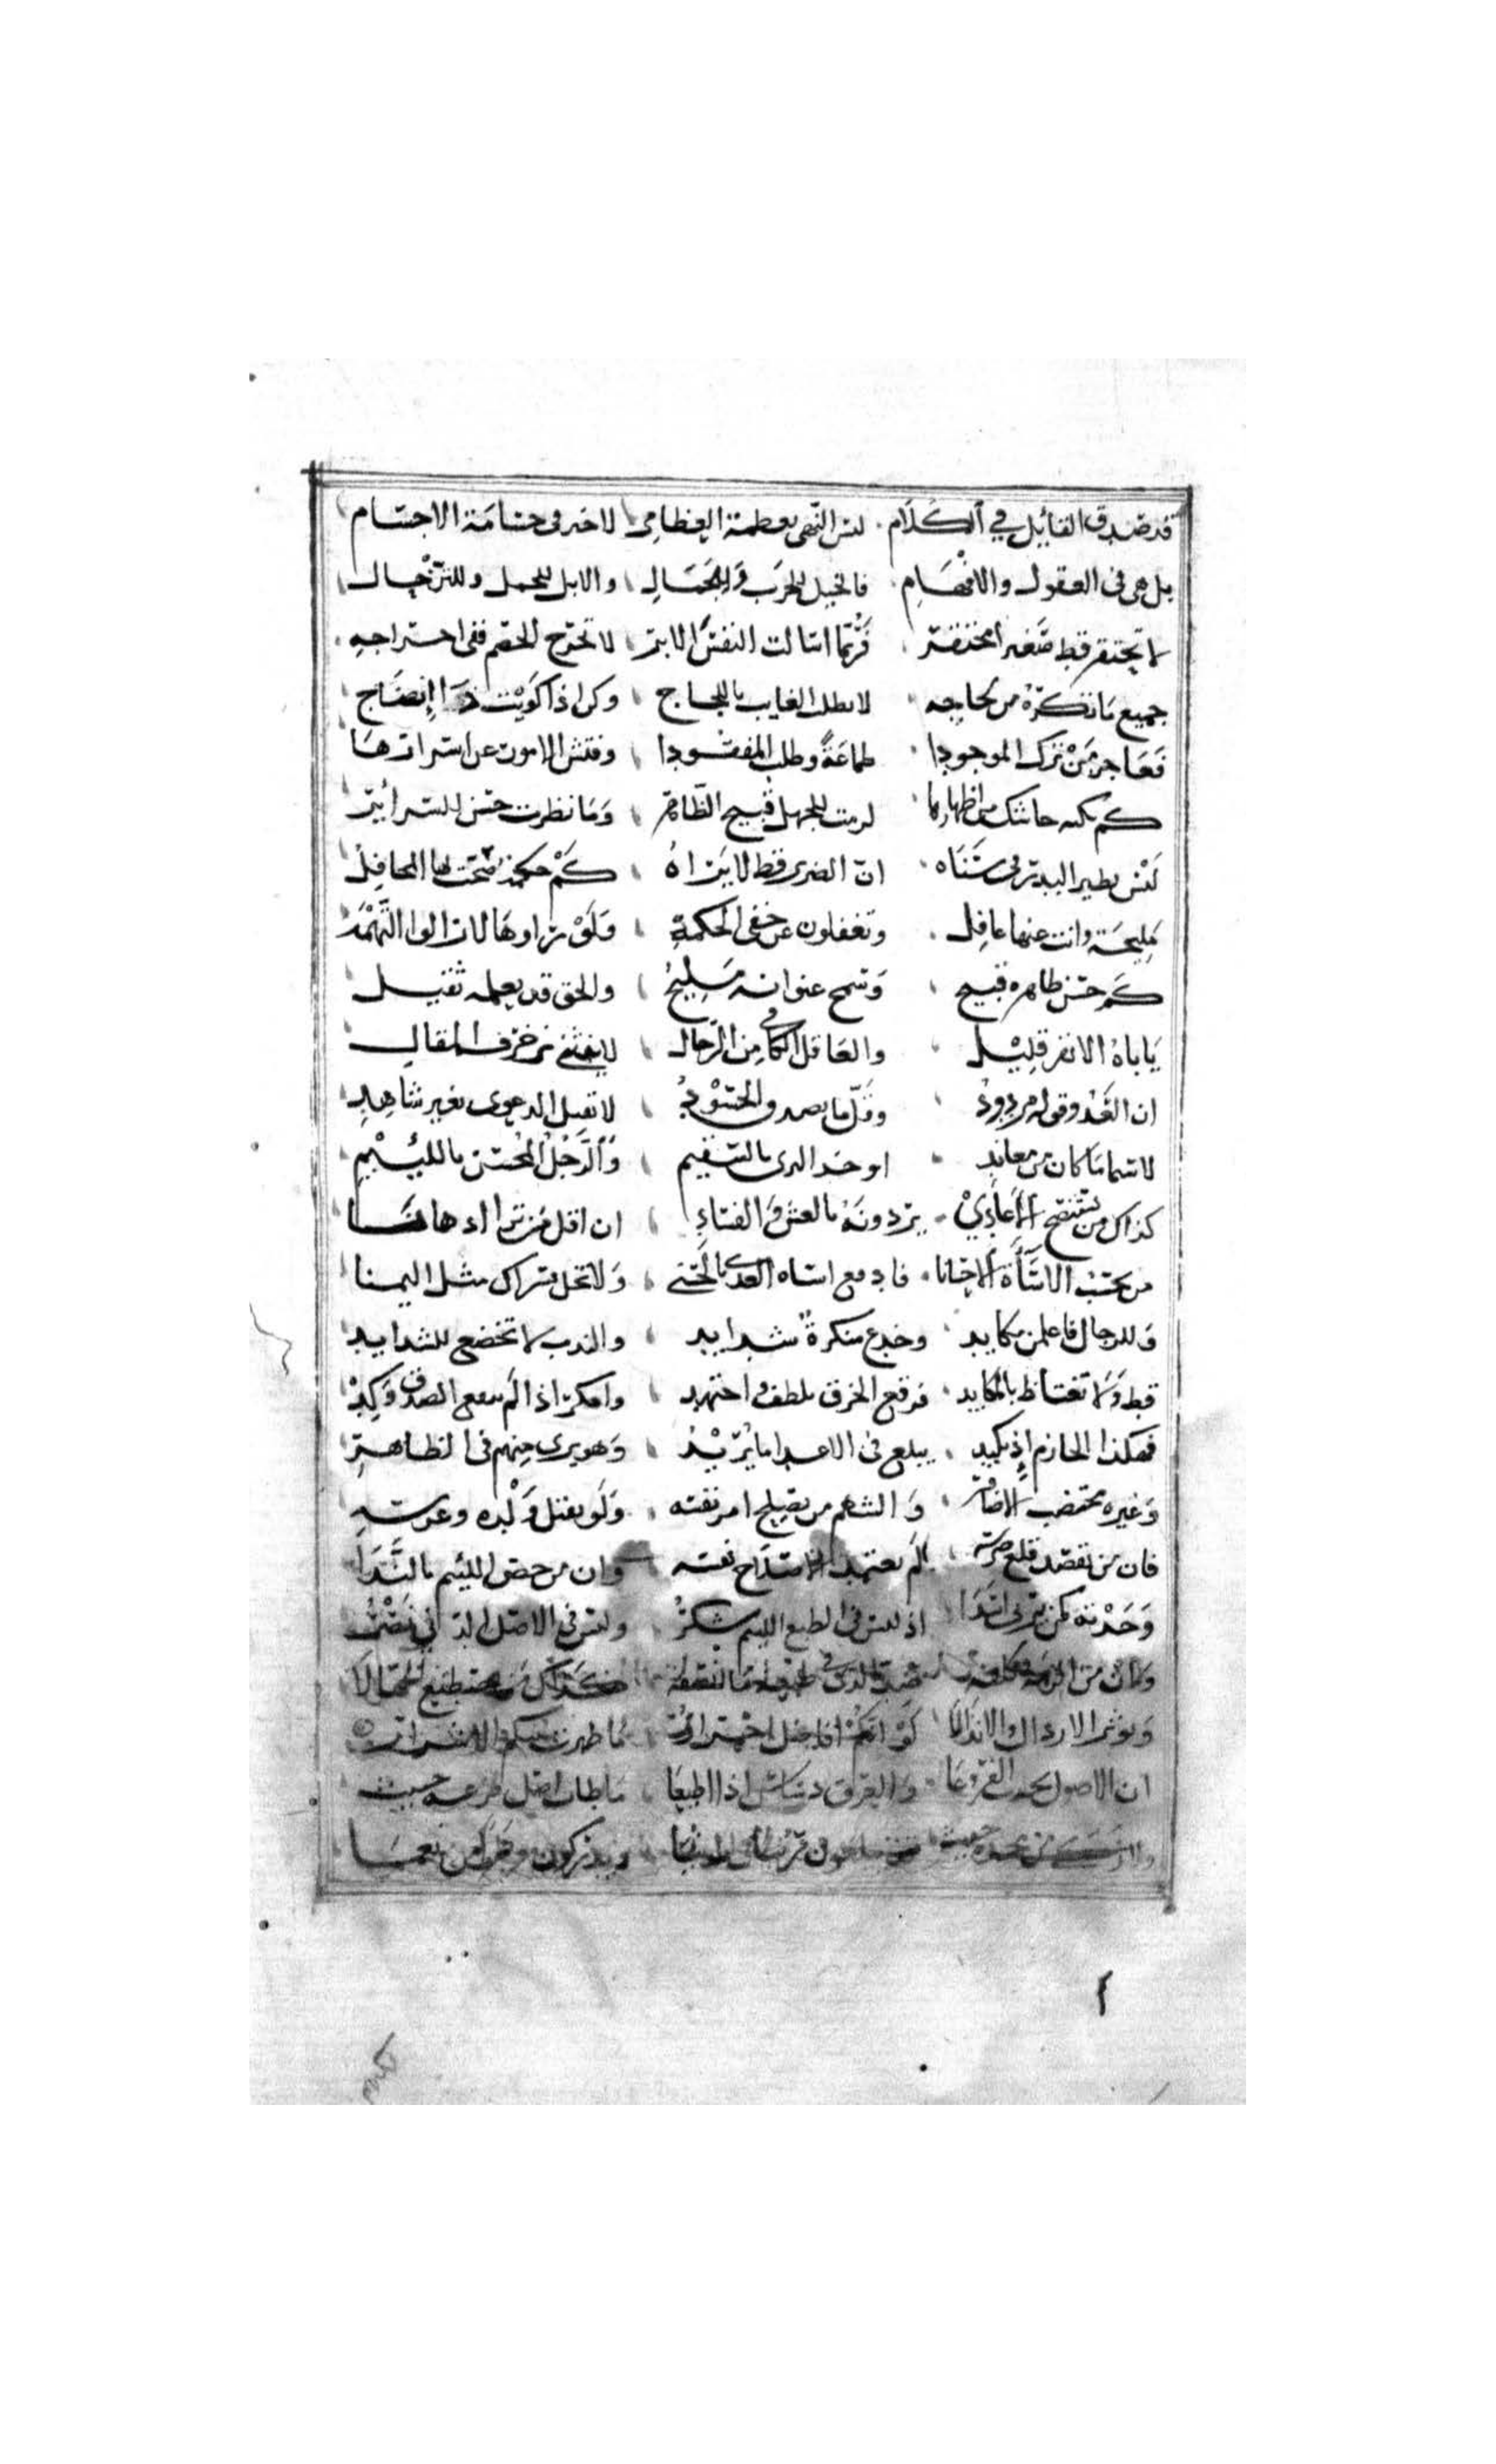 قد صدق القائل في الكلام ليس النهى بعظمة العظام لا خير في حسامة الاجسام
بل هى فى العقول والافهام فالخيل للحرب وللجمال والابل للحمل وللترحال
لا تحتقر قط صغيرا محتقر فربما اسالت النفس الابر لا تحرج الخصم ففى احراجه
جميع ما تكره من لجاجه لا تطلب الغايب باللجاج وكن اذا كويت ذا انضاج
فعاجز من ترك الموجودا طماعة وطلب المفقودا وفتش الامور عن اسرارها
كم نكته جاتك من اظهارها لزمت للجهل قبيح الظاهر وما نظرت حسن السرائر
ليس يضير البدر فى سناه ان الضرير قط لا يراه كم حكمة ضجت لها المحافل
مليحة وانت عنها غافل وتغفلون عن خفى الحكمة ولو تراوها لازالوا التهمة
كم حسن ظاهره قبيح وسمج عنوانه مليح والحق قد يعلمه ثقيل
ياباه الا نفر قليل والعاقل الكامل فى الرجال لا ينثنى لزخرف المقال
ان العدو قوله مردود وقل ما يصدق الحسود لا تقبل الدعوى بغير شاهد
لا سيما ما كان من معاند ايوخذ البرى بالسقيم والرجل المحسن باللئيم
كذاك من يستنصح الاعادي يردونه بالغش والفساد ان اقل من ترا اذهانا
من يحسب الاساءة الاحسانا فادفع اساه العدى بالحسنى ولا تخل يسراك مثل اليمنا
وللرجال فاعلمن مكايد وخدع منكرة شدايد والندب لا تخضع للشدايد
قط ولا تغتاظ بالمكايد فرقع الخرق بلطف واجتهد وامكر اذا لم ينفع الصدق وكد
فهكذا الحازم اذ يكيد يبلغ فى الاعدا ما يريد وهو يرى منهم فى الظاهر
وغيره مختضب الاظافر والشهم من يصلح امر نفسه ولو بقتل ولده وعرسه
فان من يقصد قلع ضرسه لم يعتمد الا صلاح نفسه وان من خص اللئيم بالندا
وجدته كمن يربى اسدا اذ ليس فى الطبع اللئيم شكر وليس فى الاصل الدنى نصر
كذاك من يصطنع الجهالا
ويوثر الارذال الانذالا لو انكم افاضل احرار ما ظهرت بينكم الاسرار
ان الاصول تجذب الفروعا والعرق دساس اذا اطيعا ما طاب اصل فرعه خبيث